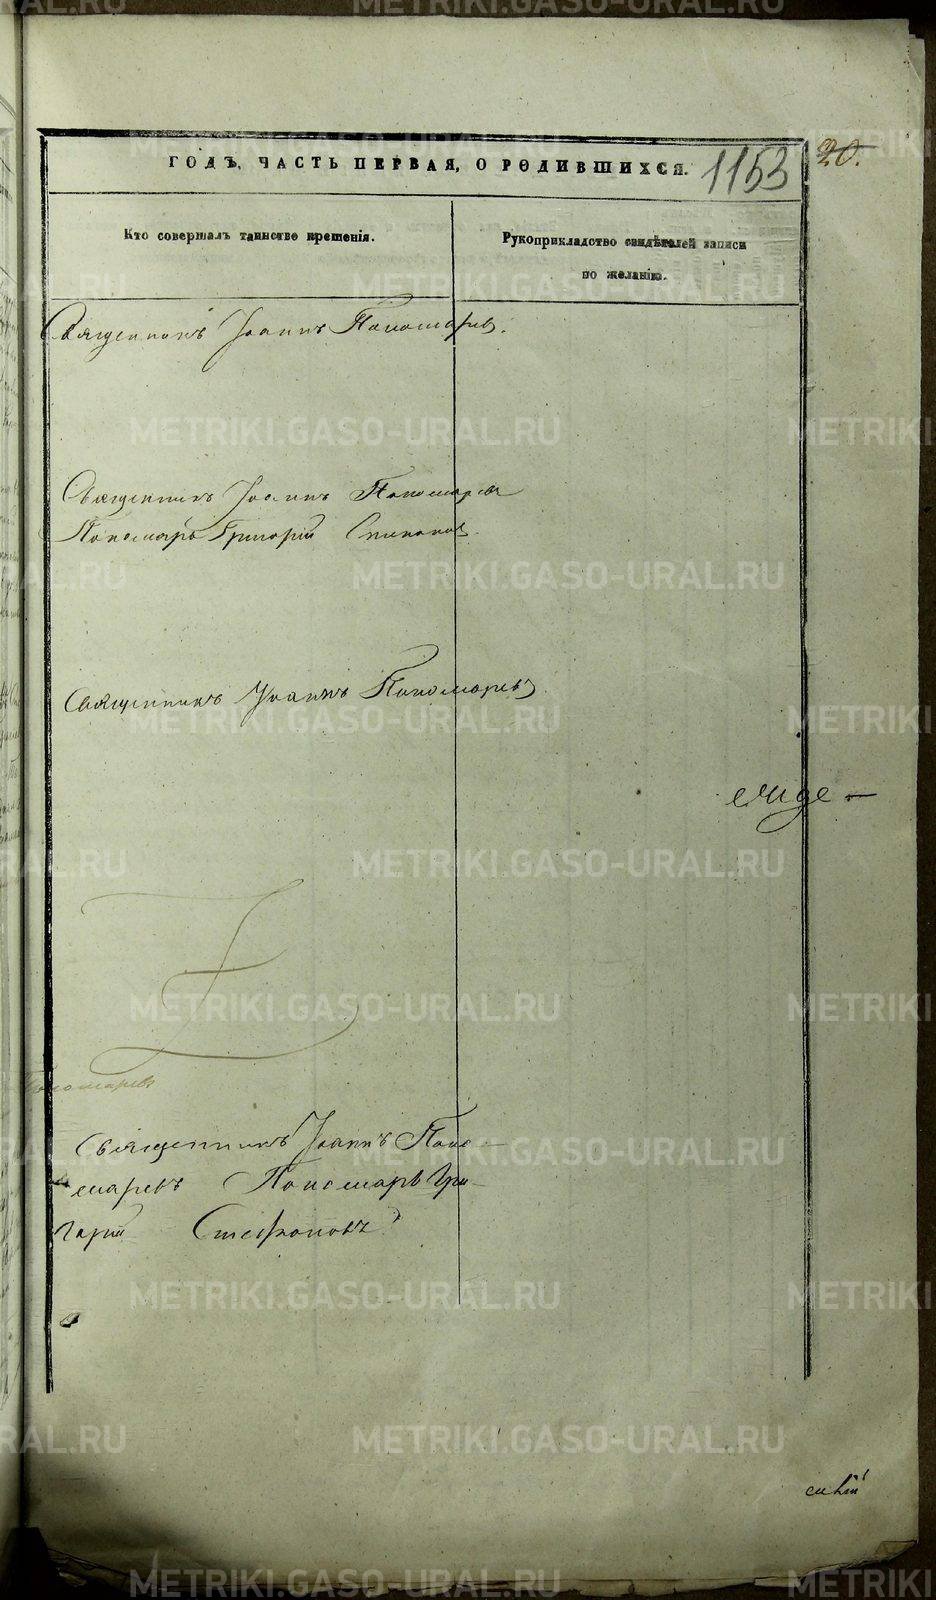 ГОДЪ, ЧАСТЬ ПЕРВАЯ, О РОДИВШИХСЯ.
1153
20.
Кто совершалъ таинство крещенія.
Рукоприкладство свидѣтелей записи
по желанію.
Священникъ Іоаннъ Пономарев.
Священникъ Іоаннъ Пономаревъ
Пономарь Григорій
Священникъ Іоаннъ Пономаревъ.
Пономаревъ
Священникъ Іоаннъ Поно-
маревъ Пономарь Гри-
горій Стефановъ
METRIKI.GASO-URAL.RU